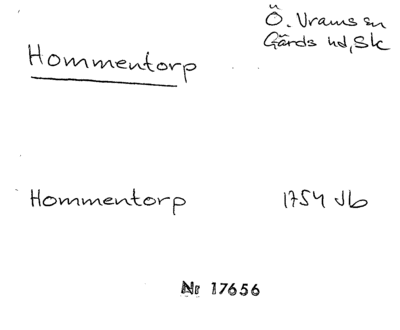 Ö. Vrams sn
Gärds hd, Sk
Hommentorp
Hommentorp 1754 Jb
Nr 17656